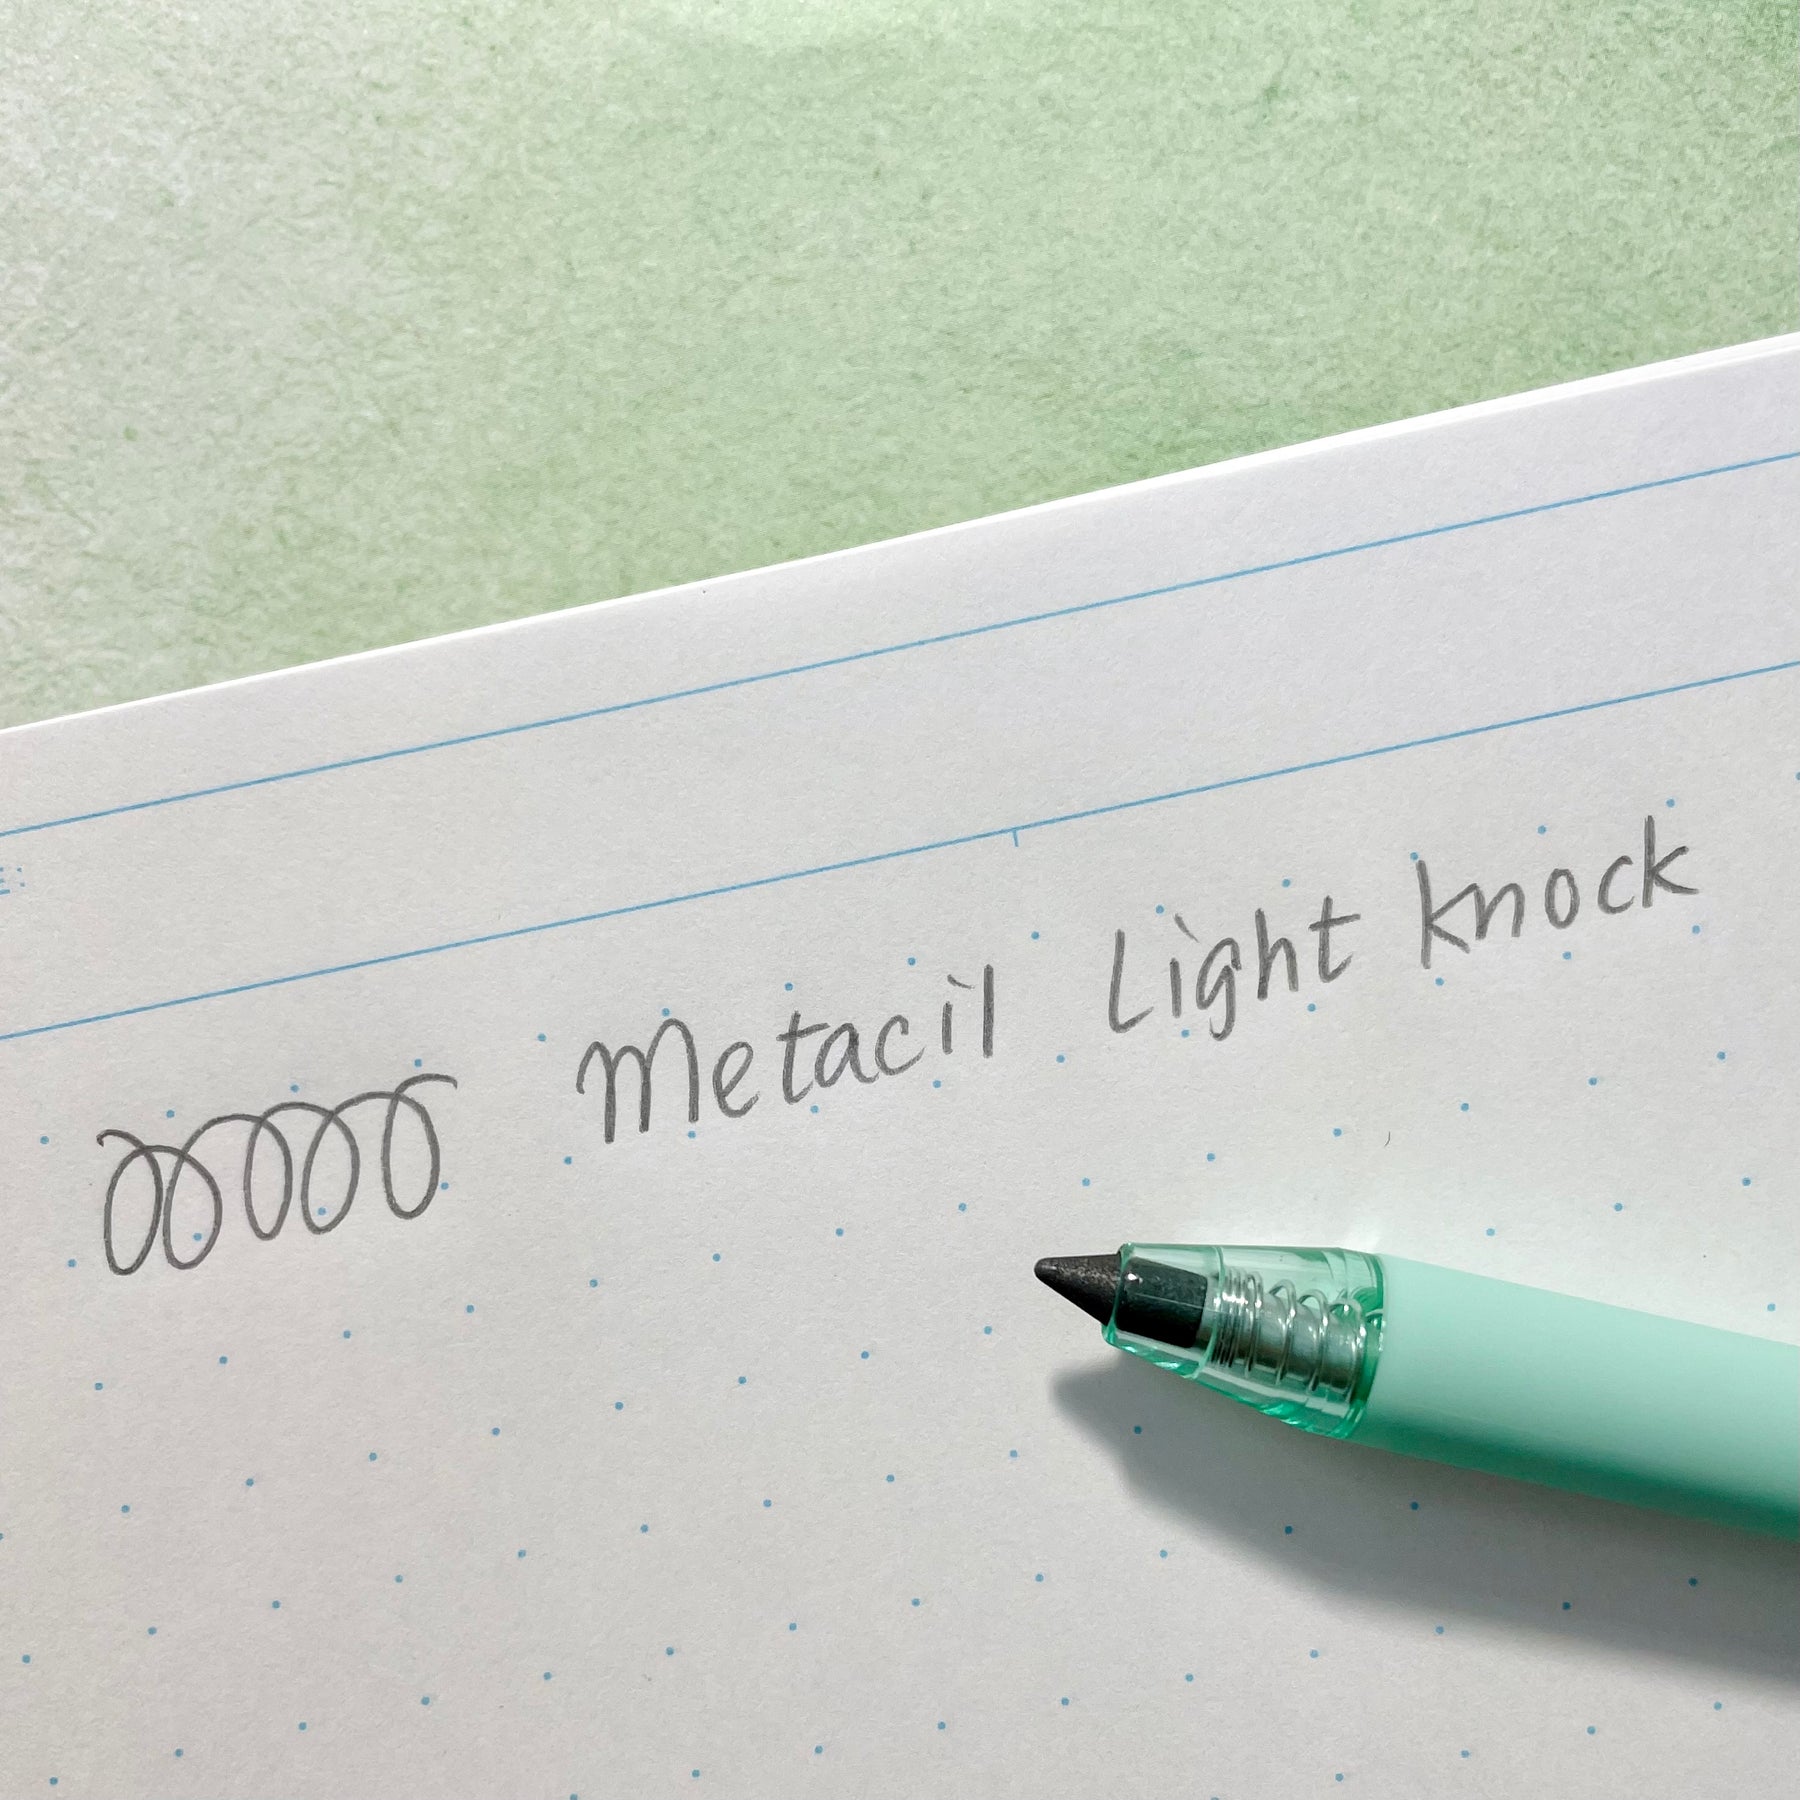 Metacil Light Knock